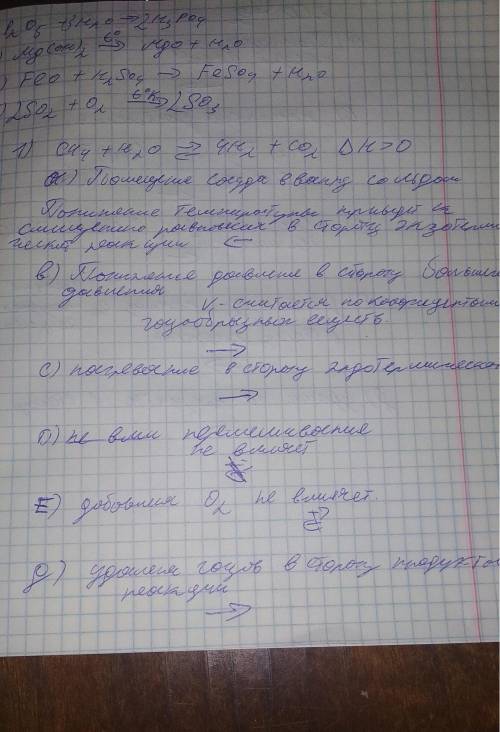 P₂O₅ + 3H₂O → 2H₃PO₄
Mg(OH)₂ →(t°) MgO + H₂O
) FeO + H₂SO₄ → FeSO₄ + H₂O
) 2SO₂ + O₂ →(t°K) 2SO₃
1) CH₄ + H₂O ⇄ 4H₂ + CO₂ ΔH>0
Помещение сосуда в ванну со льдом
Понижение температуры приведёт к
смещению равновесия в сторону экзотерми
ческой реакции ←
в) Понижение давления в сторону большего
давления
V - считается по коэффицентам
газообрызных веществ.
→
С) нагревание в сторону эндотермическо
→
D) не вли перемешивания
не влияет
E) добовления O₂ не влияет.
⇄
g) удаления газов в сторону продуктов
реакции
→